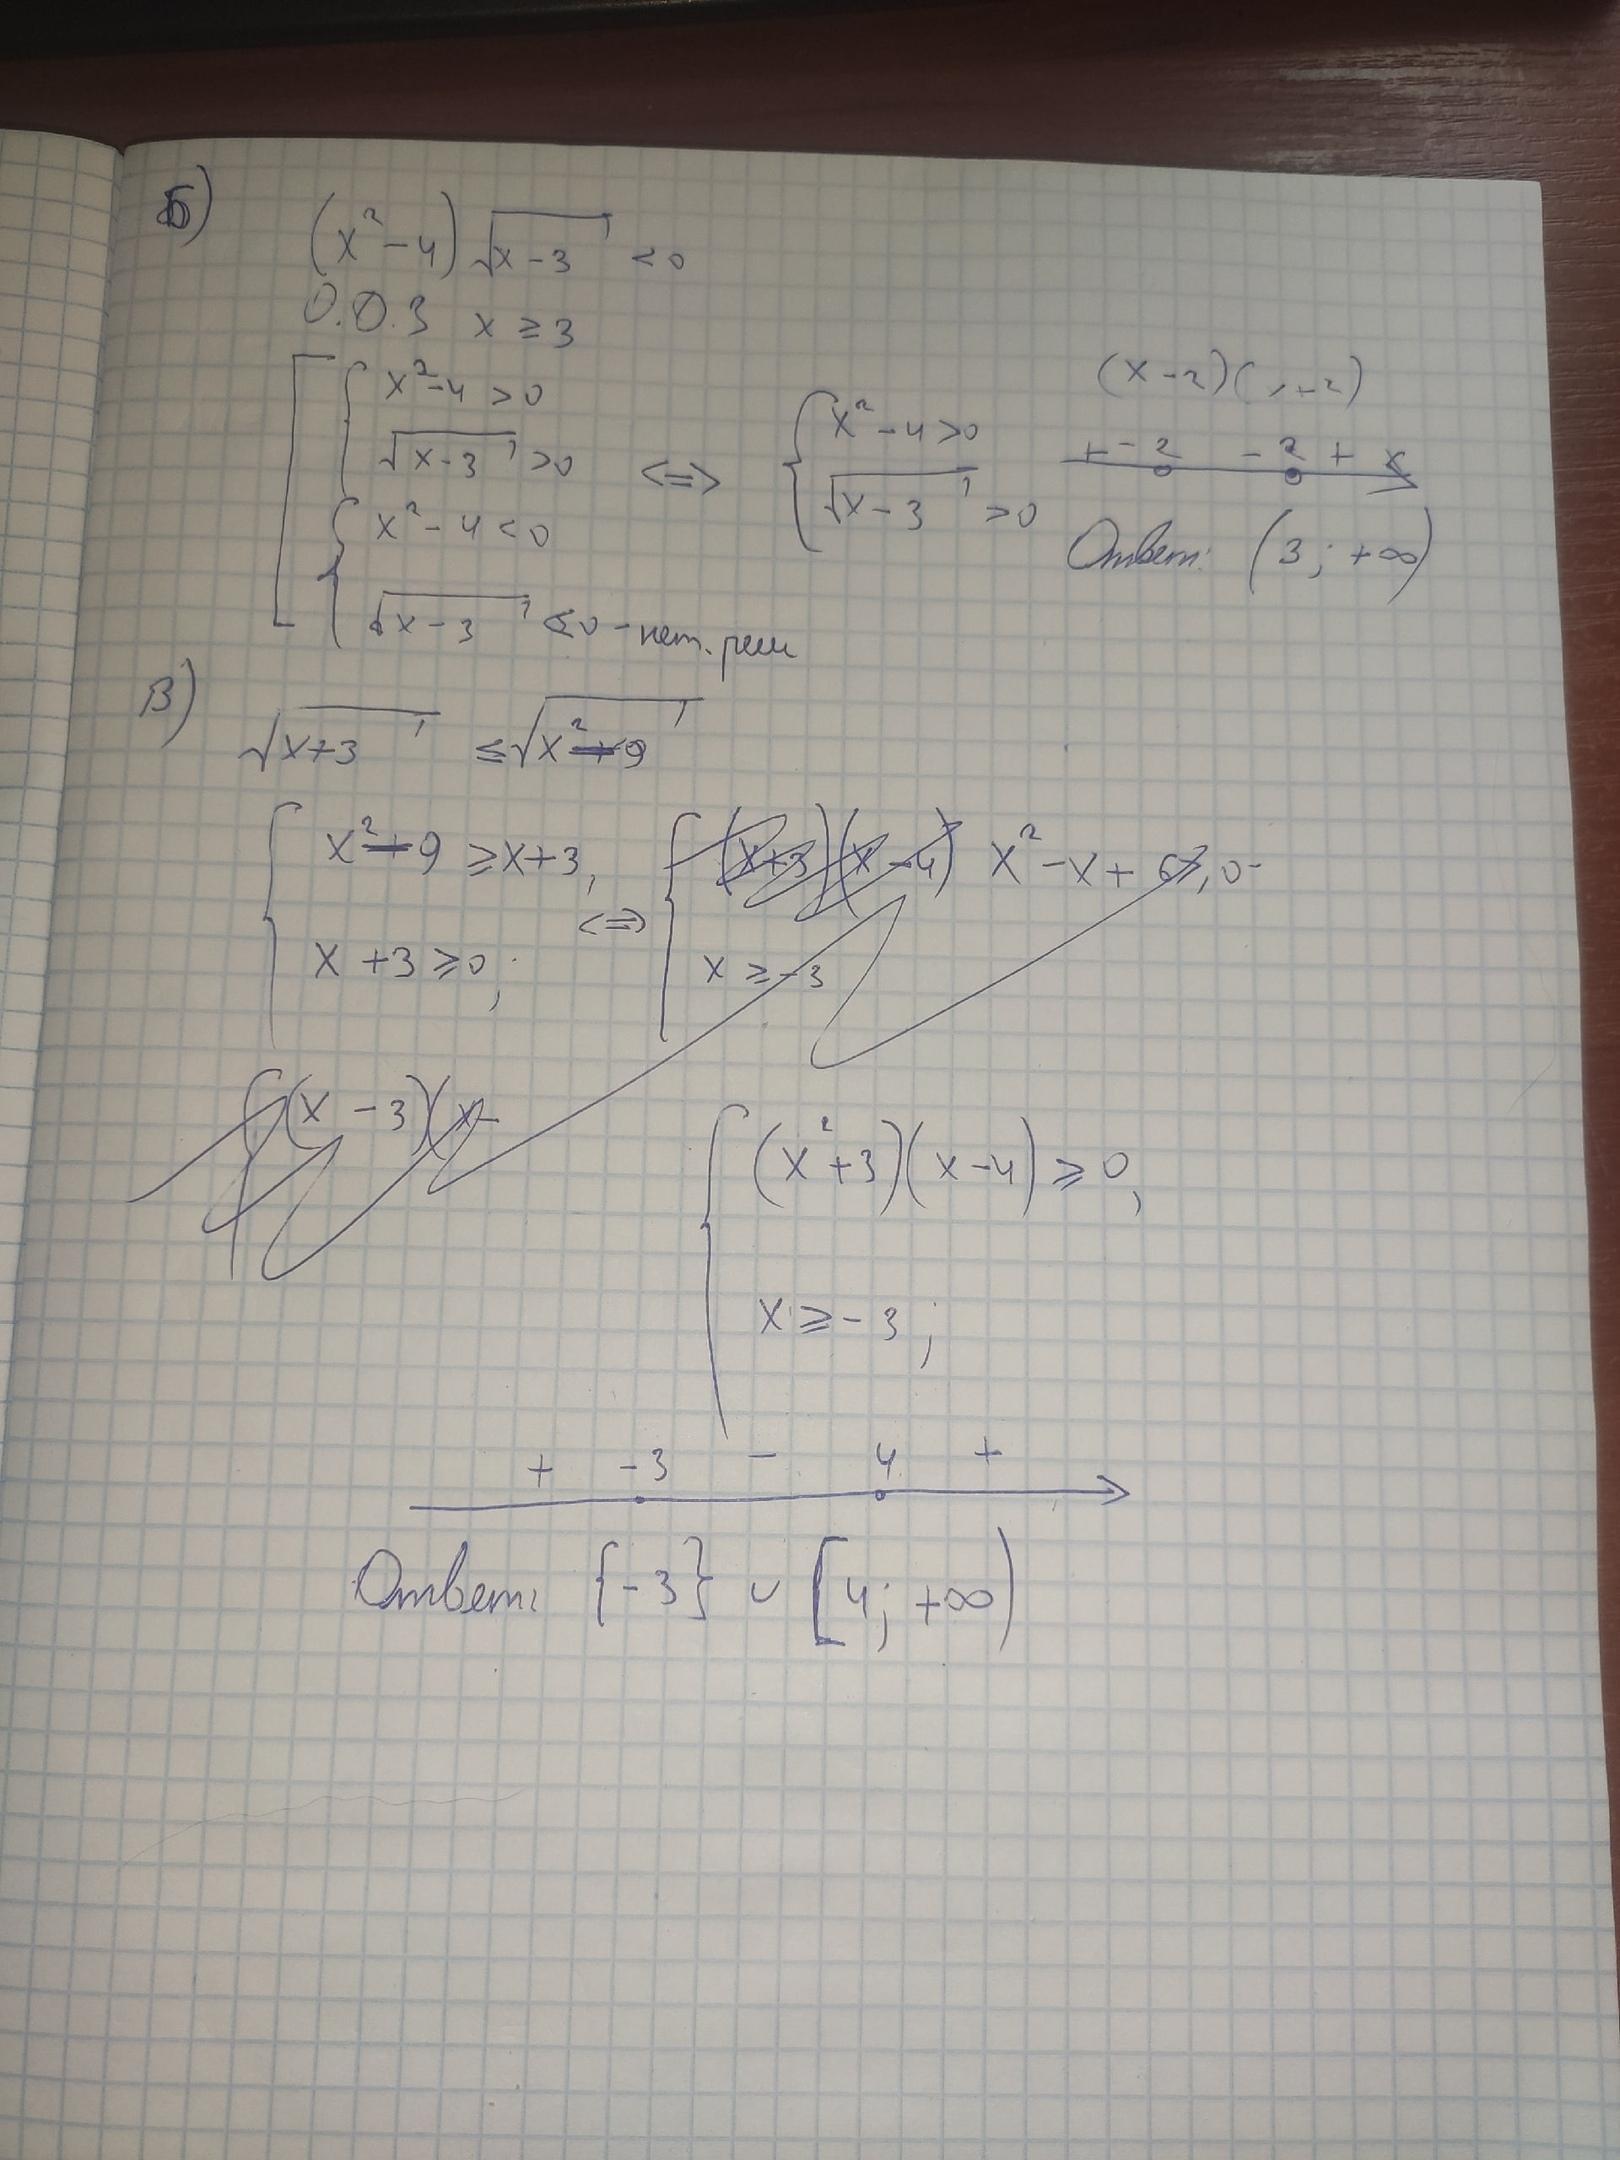 Б)
(x² - 4) √(x - 3) < 0
О.О.З x ≥ 3
x² - 4 > 0
√(x - 3) > 0
x² - 4 < 0
√(x - 3) < 0 - нет. реш
<=>
x² - 4 > 0
√(x - 3) > 0
(x - 2)( + 2)
+ - 2 - 2 + x
Ответ: (3; +∞)
В)
√(x + 3) ≤ √(x² - 9)
x² - 9 ≥ x + 3,
x + 3 ≥ 0;
<=>
(x + 3)(x - 4) x² - x + 6 ≥ 0
x ≥ -3
(x - 3)(x -
(x² + 3)(x - 4) ≥ 0,
x ≥ -3;
+ -3 - 4 +
Ответ: {-3} ∪ [4; +∞)